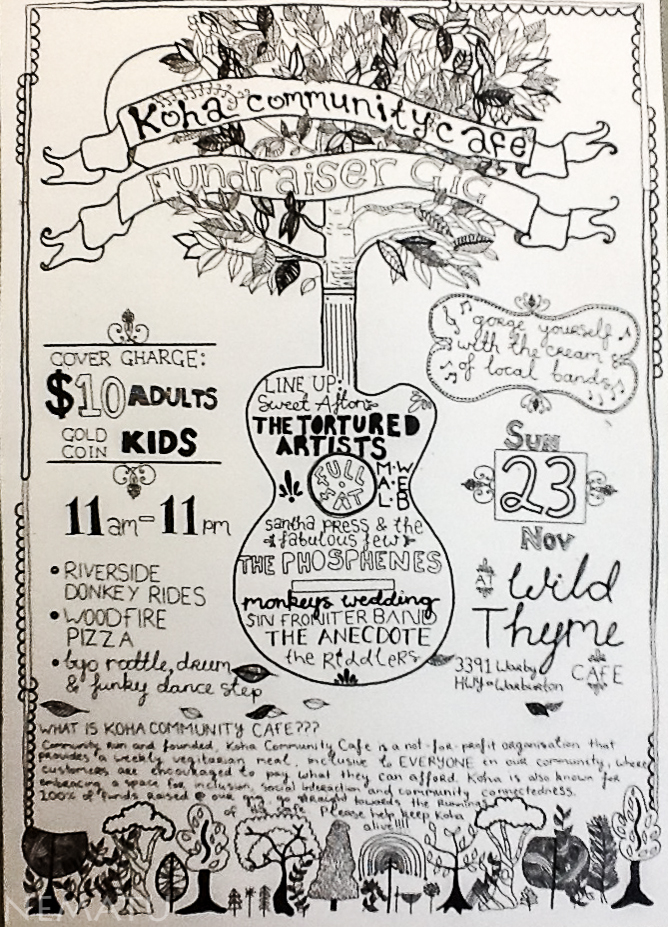 Koha community cafe
Fundraiser GIG
gorge yourself
with the cream
of local bands
COVER GHARGE:
$10 ADULTS
GOLD COIN KIDS
11am-11pm
• RIVERSIDE
DONKEY RIDES
• WOODFIRE
PIZZA
• byo rattle, drum
& funky dance step
LINE UP:
Sweet Aftons
THE TORTURED
ARTISTS
FULL FAT
M.W
A.E
L.B
santha press & the
fabulous few
THE PHOSPHENES
monkeys wedding
SIN FRONITER BAND
THE ANECDOTE
the RIDDLERS
SUN
23
NOV
AT Wild
Thyme
CAFE
3391 Warby
HWY Warburton
WHAT IS KOHA COMMUNITY CAFE???
Community Run and founded, Koha Community Cafe is a not-for-profit organisation that
provides a weekly vegitarian meal, inclusive to EVERYONE in our community, where
customers are encouraged to pay what they can afford. Koha is also known for
embracing a space for inclusion, social interaction and community connectedness.
100% of funds raised @ our gig go straight towards the running
of the cafe Please help keep Koha
alive!!!!